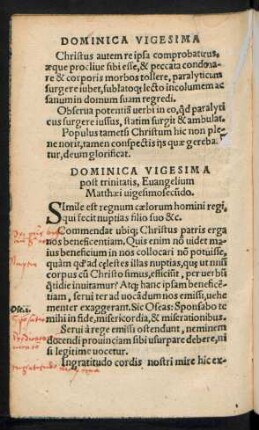 DOMINICA VIGESIMA
Christus autem re ipsa comprobaturus,
æque procliue sibi esse, & peccata condona-
re & corporis morbos tollere, paralyticum
surgere iubet, sublatoq; lecto incolumem ac
sanum in domum suam regredi.
Obserua potentiā uerbi in eo, qđ paralyti
cus surgere iussus, statim surgit & ambulat.
Populus tametsi Christum hic non ple-
ne norit, tamen conspectis ijs quæ gereba-
tur, deum glorificat.
DOMINICA VIGESIMA
post trinitatis, Euangelium
Matthæi uigesimosecūdo.
Simile est regnum cælorum homini regi,
qui fecit nuptias filio suo &c.
Commendat ubiq; Christus patris erga
nos beneficentiam. Quis enim nō uidet ma
ius beneficium in nos collocari nō potuisse,
quàm qđ ad celestes illas nuptias, quę ut unū
corpus cū Christo simus, efficiūt, per uerbū
quotidie inuitamur? Atq; hanc ipsam beneficē-
tiam, serui ter ad uocādum nos emissi, uehe
menter exaggerant. Sic Oseas: Sponsabo te
mihi in fide, misericordia, & miserationibus.
Serui à rege emissi ostendunt, neminem
docendi prouinciam sibi usurpare debere, ni
si legitime uocetur.
Ingratitudo cordis nostri mire hic ex-